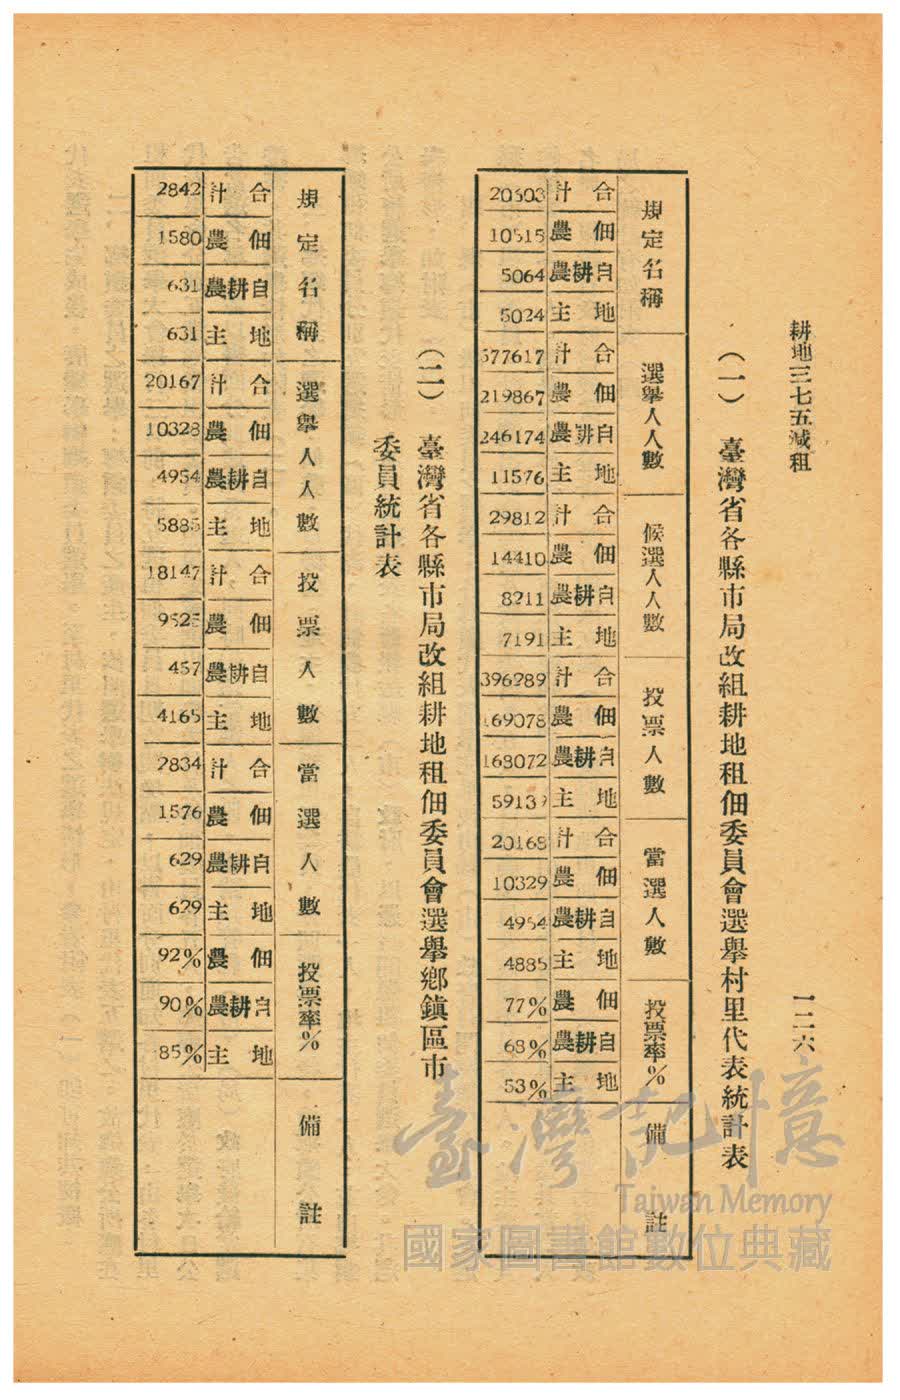 耕地三七五減租
一二六
（一）　臺灣省各縣市局改組耕地租佃委員會選舉村里代表統計表
規定名稱　選舉人人數　候選人人數　投票人數　當選人數　投票率%　備註
合計　佃農　自耕農　地主　合計　佃農　自耕農　地主　合計　佃農　自耕農　地主　合計　佃農　自耕農　地主　合計　佃農　自耕農　地主　佃農　自耕農　地主
20603　10515　5064　5024　577617　219867　246174　11576　29812　14410　8211　7191　396289　169078　168072　20168　10329　4954　4885　77%　68%　53%
（二）　臺灣省各縣市局改組耕地租佃委員會選舉鄉鎮區市
委員統計表
規定名稱　選舉人人數　投票人數　當選人數　投票率%　備註
合計　佃農　自耕農　地主　合計　佃農　自耕農　地主　合計　佃農　自耕農　地主　合計　佃農　自耕農　地主　佃農　自耕農　地主
2842　1580　631　631　20167　10328　4954　5885　18147　9525　457　4165　2834　1576　629　629　92%　90%　85%
臺灣記憶
Taiwan Memory
國家圖書館數位典藏